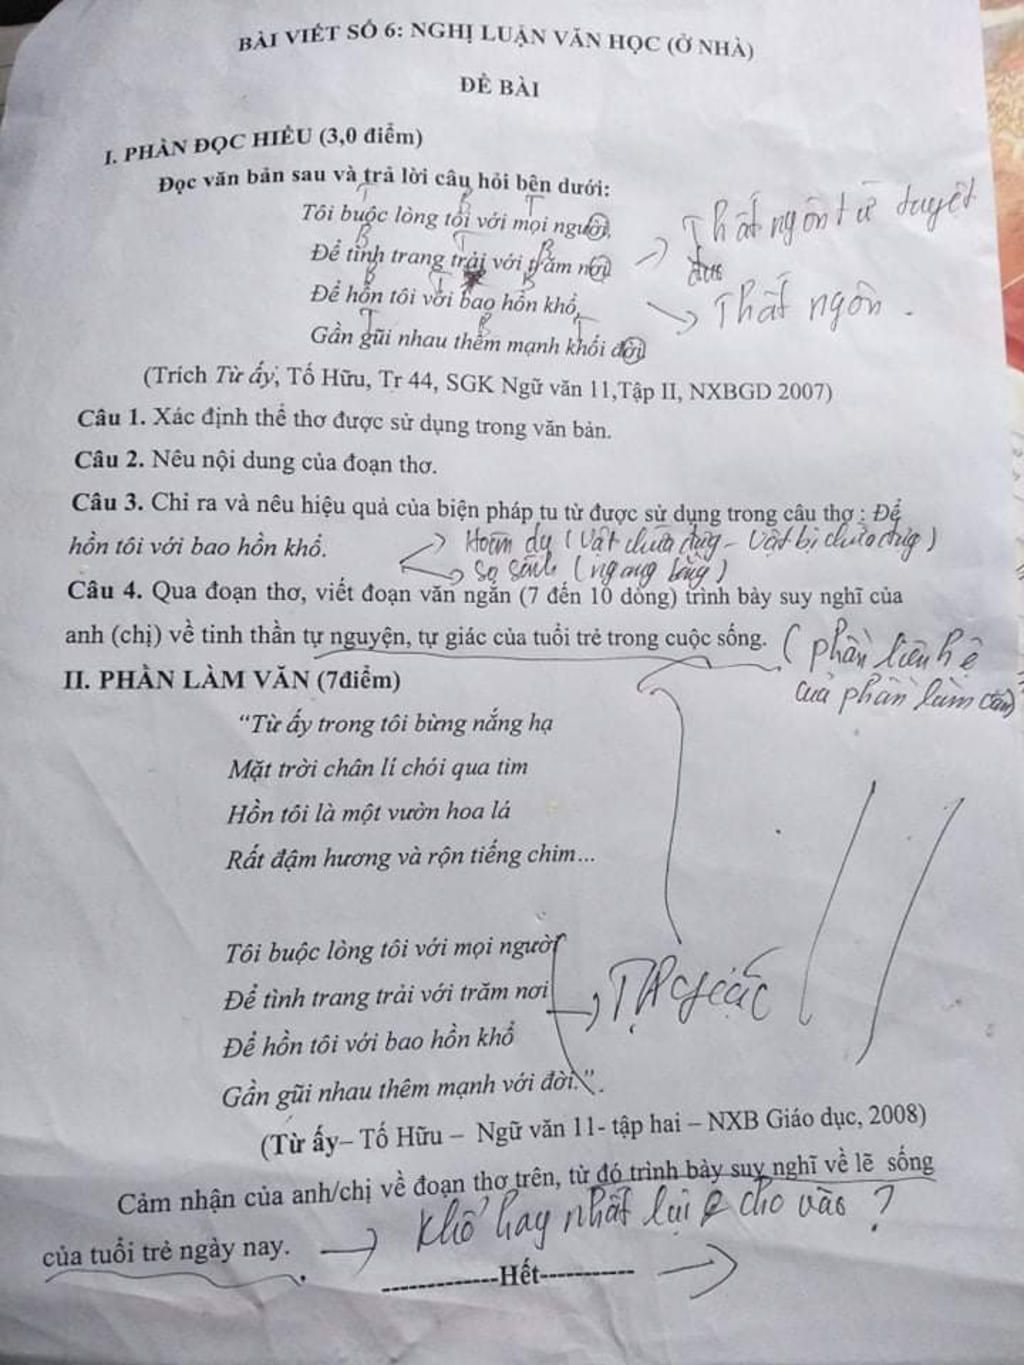 BÀI VIẾT SỐ 6: NGHỊ LUẬN VĂN HỌC (Ở NHÀ)
ĐỀ BÀI
I. PHẦN ĐỌC HIỂU (3,0 điểm)
Đọc văn bản sau và trả lời câu hỏi bên dưới:
Tôi buộc lòng tôi với mọi người,
Để tình trang trải với trăm nơi
Để hồn tôi với bao hồn khổ,
Gần gũi nhau thêm mạnh khối đời
Thất ngôn tứ tuyệt
Thất ngôn.
(Trích Từ ấy, Tố Hữu, Tr 44, SGK Ngữ văn 11,Tập II, NXBGD 2007)
Câu 1. Xác định thể thơ được sử dụng trong văn bản.
Câu 2. Nêu nội dung của đoạn thơ.
Câu 3. Chỉ ra và nêu hiệu quả của biện pháp tu từ được sử dụng trong câu thơ : Để
hồn tôi với bao hồn khổ.
Hoán dụ (Vật chứa đựng - Vật bị chứa đựng)
So sánh (ngang bằng)
Câu 4. Qua đoạn thơ, viết đoạn văn ngắn (7 đến 10 dòng) trình bày suy nghĩ của
anh (chị) về tinh thần tự nguyện, tự giác của tuổi trẻ trong cuộc sống.
(phần liên hệ
của phần làm văn)
II. PHẦN LÀM VĂN (7điểm)
“Từ ấy trong tôi bừng nắng hạ
Mặt trời chân lí chói qua tim
Hồn tôi là một vườn hoa lá
Rất đậm hương và rộn tiếng chim...
Tôi buộc lòng tôi với mọi người
Để tình trang trải với trăm nơi
Để hồn tôi với bao hồn khổ
Gần gũi nhau thêm mạnh với đời.”.
Tự giác
(Từ ấy– Tố Hữu – Ngữ văn 11- tập hai – NXB Giáo dục, 2008)
Cảm nhận của anh/chị về đoạn thơ trên, từ đó trình bày suy nghĩ về lẽ sống
của tuổi trẻ ngày nay.
Khổ hay nhất lại cho vào ?
-------------Hết-----------